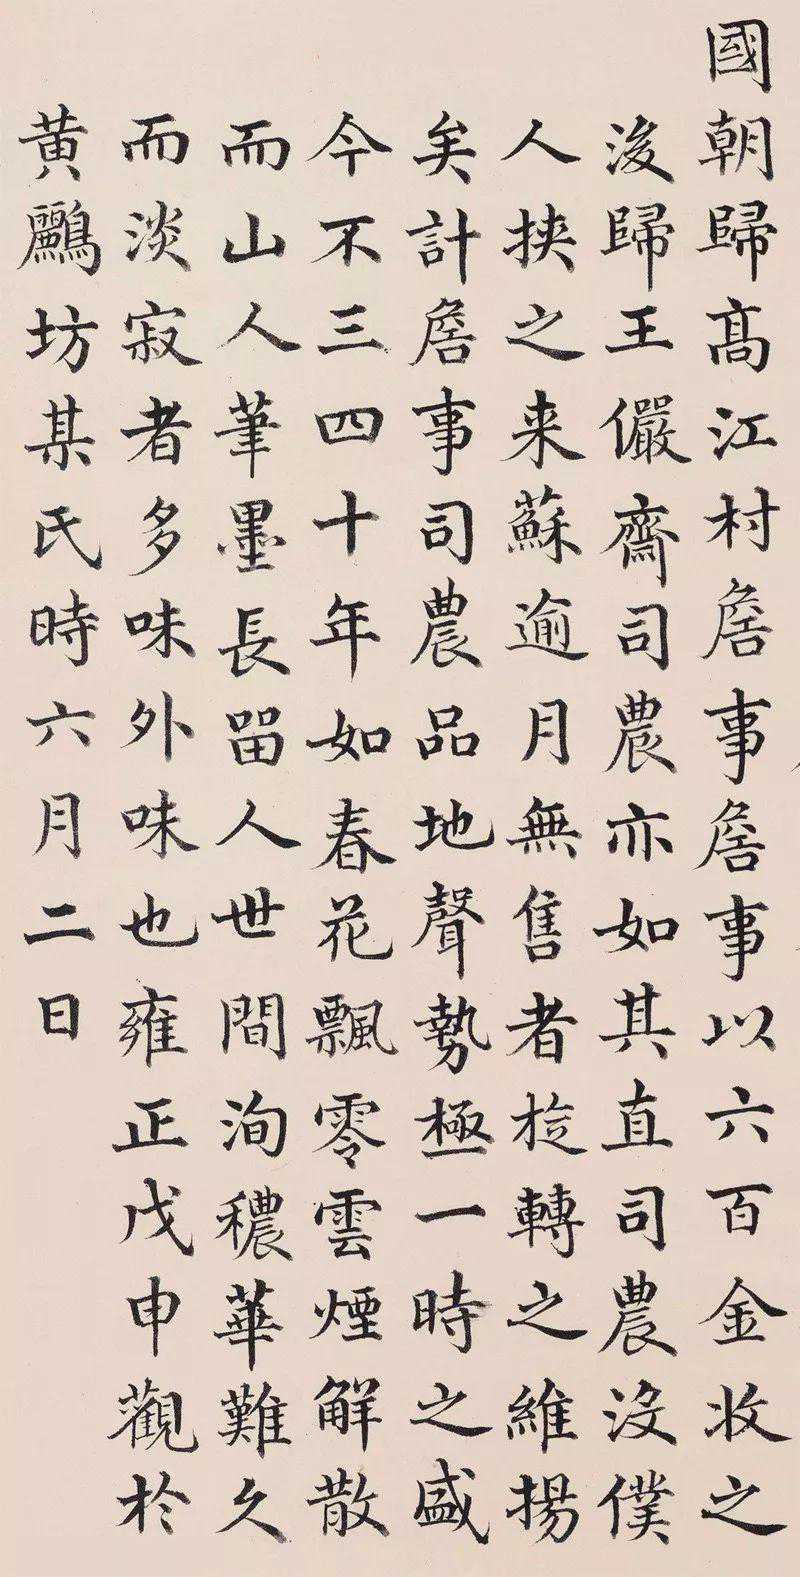 國朝歸高江村詹事詹事以六百金收之
後歸王儼齋司農亦如其直司農沒僕
人挟之来蘇逾月無售者於轉之維揚
矣計詹事司農品地聲勢極一時之盛
今不三四十年如春花飄零雲煙解散
而山人筆墨長留人世間洵穠華難久
而淡寂者多味外味也雍正戊申觀於
黄鸝坊某氏時六月二日